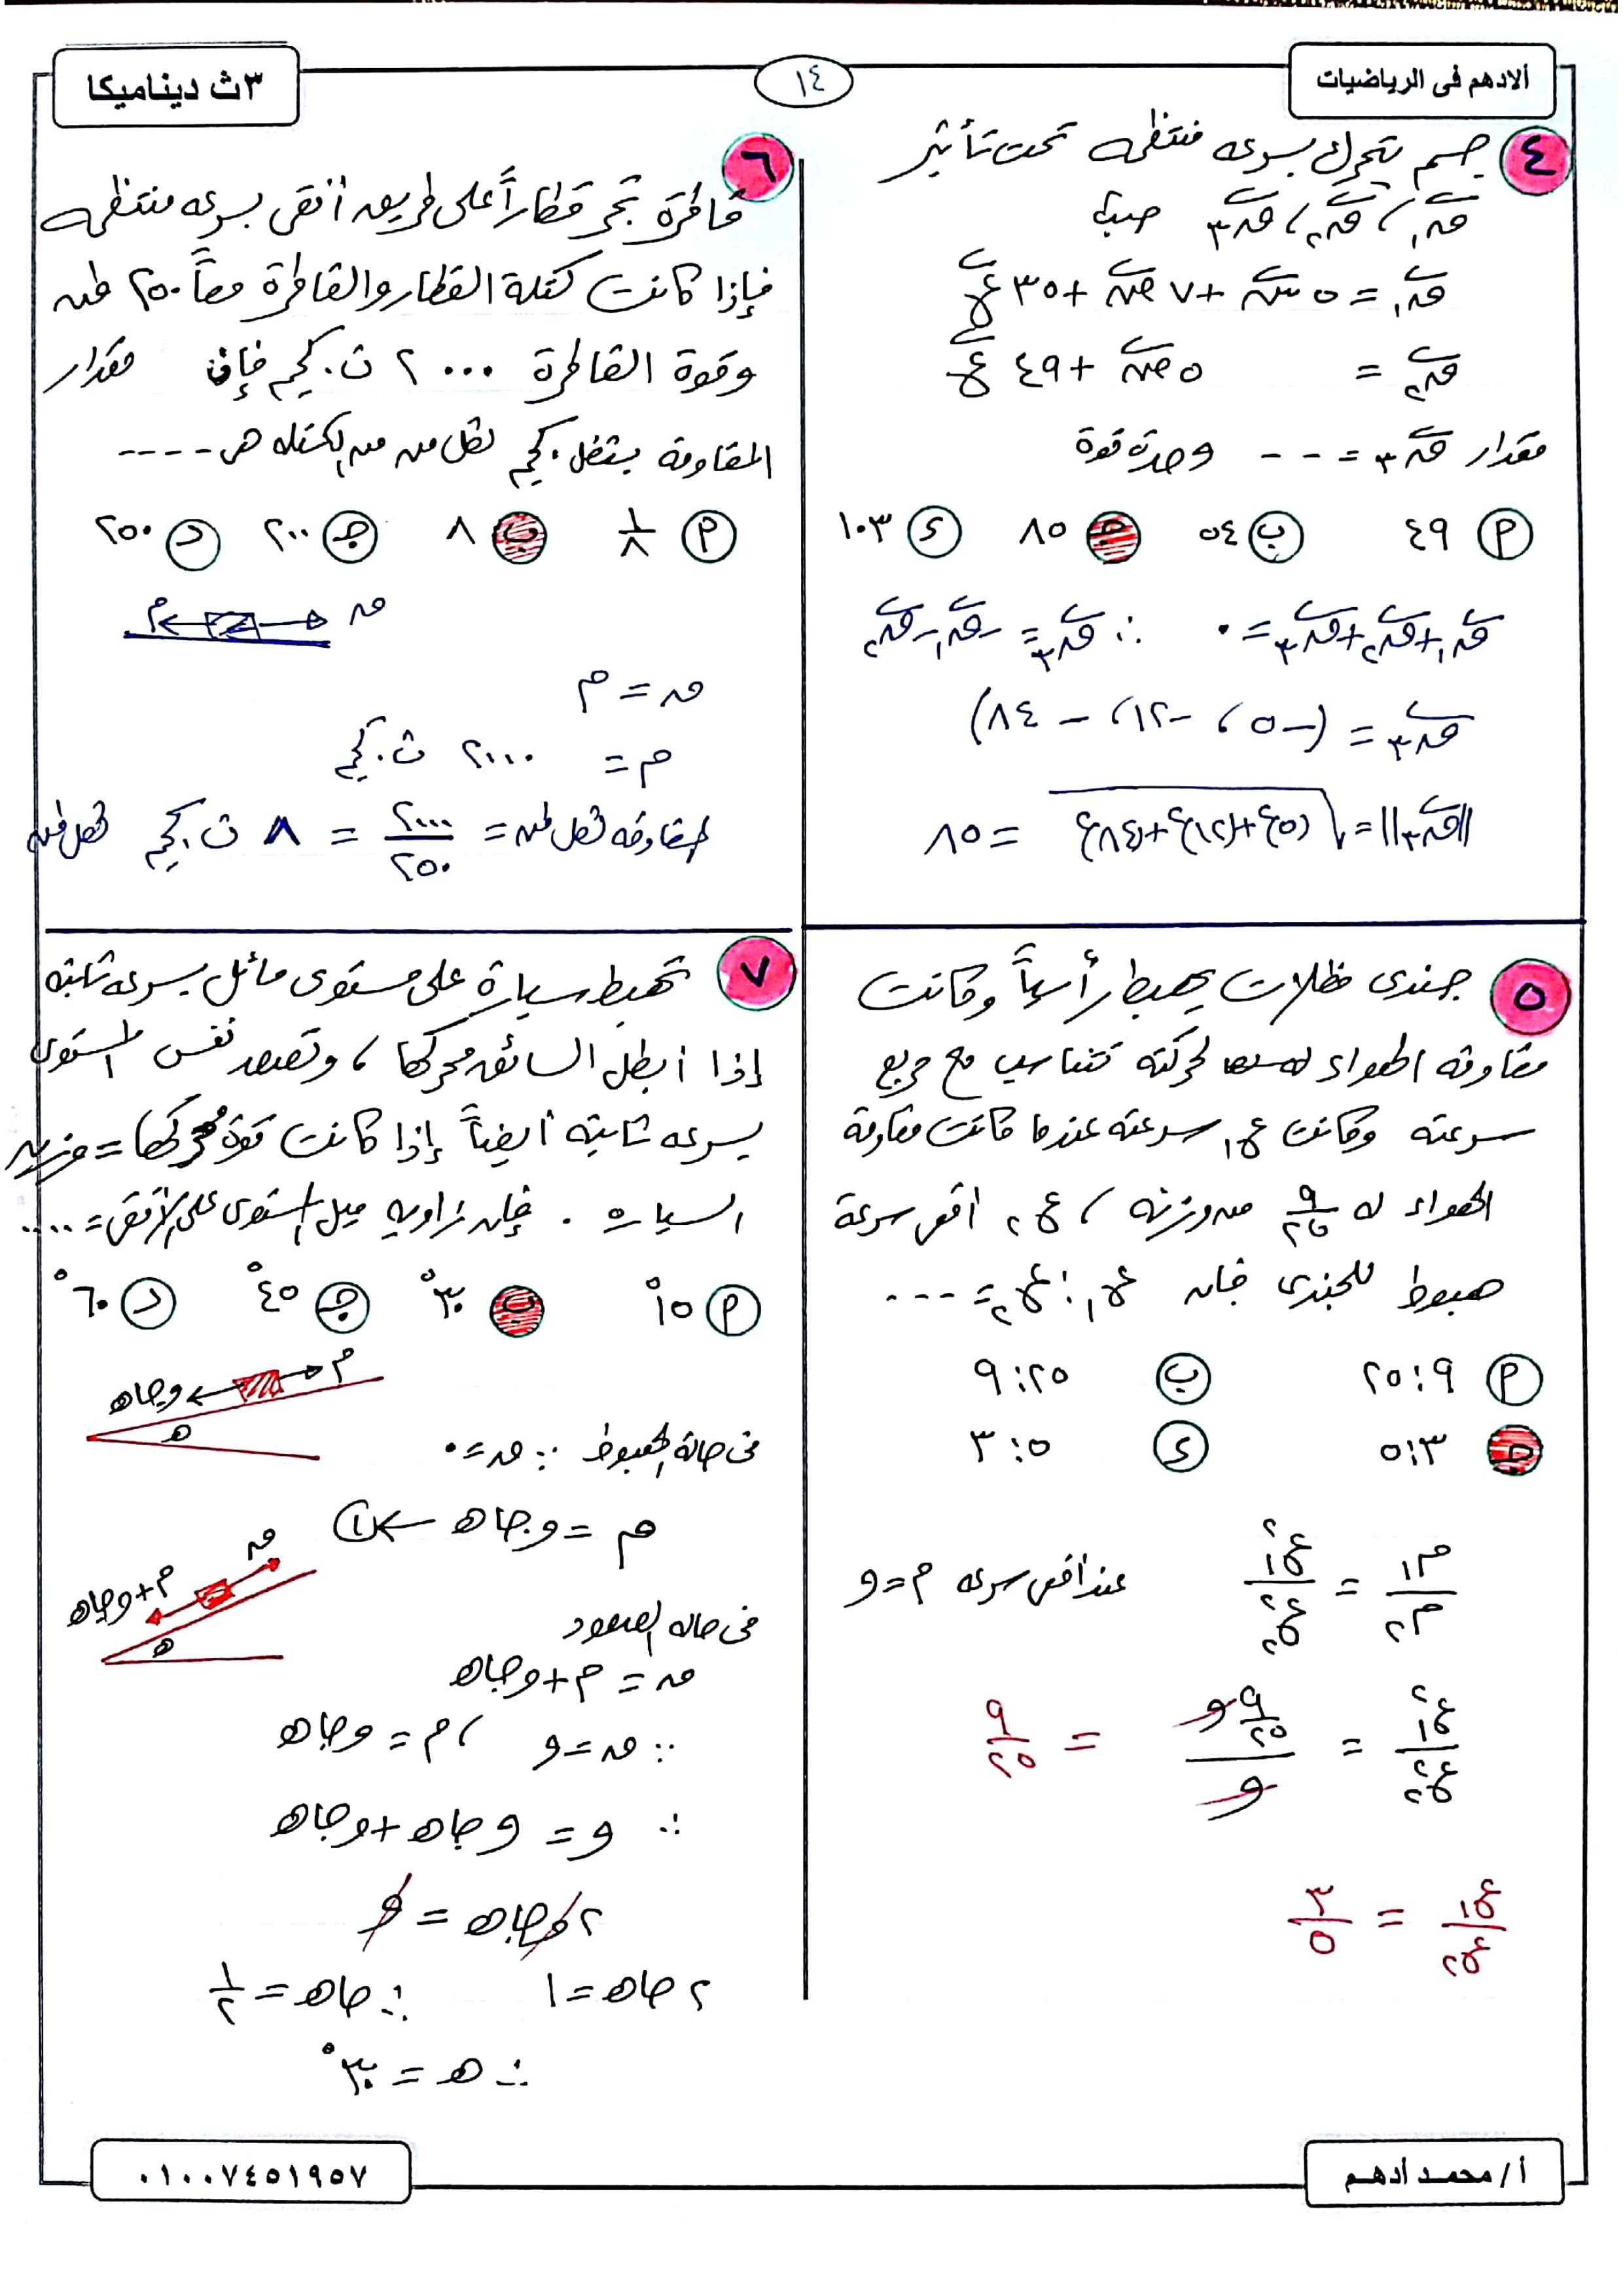 ألادهم فى الرياضيات
١٤
٣ث ديناميكا
٤ جسم يتحرك بسرعه منتظمه تحت تأثير
ق١ ، ق٢ ، ق٣ حيث
ق١ = ٥ س + ٧ ص + ٣٥ ع
ق٢ = ٥ ص + ٤٩ ع
مقدار ق٣ = --- وحدة قوة
أ ٤٩ ب ٥٤ ج ٨٥ د ١٠٣
ق١ + ق٢ + ق٣ = ٠ ∴ ق٣ = -ق١ - ق٢
ق٣ = (-٥ ، -١٢ ، -٨٤)
||ق٣|| = √(٥)٢+(١٢)٢+(٨٤)٢ = ٨٥
٥ جندى مظلات يهبط رأسياً وكانت
مقاومه الهواء لحركته تتناسب مع مربع
سرعته وكانت ع١ سرعته عندما كانت مقاومة
الهواء له ٩/٢٥ من وزنه ، ع٢ اقصى سرعة
هبوط للجندى فإن ع١ : ع٢ = ---
أ ٩ : ٢٥ ب ٢٥ : ٩
ج ٣ : ٥ د ٥ : ٣
م١/م٢ = ع١٢/ع٢٢ عند اقصى سرعه م = و
ع١٢/ع٢٢ = ٩/٢٥ و/و = ٩/٢٥
ع١/ع٢ = ٣/٥
٦
قاطرة تجر قطاراً على طريق أفقى بسرعه منتظمه
فإذا كانت كتلة القطار والقاطرة معاً ٢٥٠ طن
وقوة القاطرة ٢٠٠٠ ث.كجم فإن مقدار
المقاومة بثقل.كجم لكل طن من الكتله هى ----
أ ١/٨ ب ٨ ج ٢٠٠ د ٢٥٠
م ق
ق = م
م = ٢٠٠٠ ث.كجم
المقاومه لكل طن = ٢٠٠٠/٢٥٠ = ٨ ث.كجم لكل طن
٧ تهبط سيارة على مستوى مائل بسرعه ثابته
إذا أبطل السائق محركها ، وتصعد نفس المستوى
بسرعه ثابته أيضاً إذا كانت قوة محركها = وزن
السياره . فإن زاويه ميل المستوى على الأفقى = ....
أ ١٥° ب ٣٠° ج ٤٥° د ٦٠°
م وجاه
ه
فى حالة الهبوط ∵ ق = ٠
م = وجاه ← ١
ق م+وجاه
ه
فى حاله الصعود
ق = م + وجاه
∵ ق = و ، م = وجاه
∴ و = وجاه + وجاه
٢ وجاه = و
٢ جاه = ١ ∴ جاه = ١/٢
∴ ه = ٣٠°
أ / محمد أدهم
٠١٠٠٧٤٥١٩٥٧